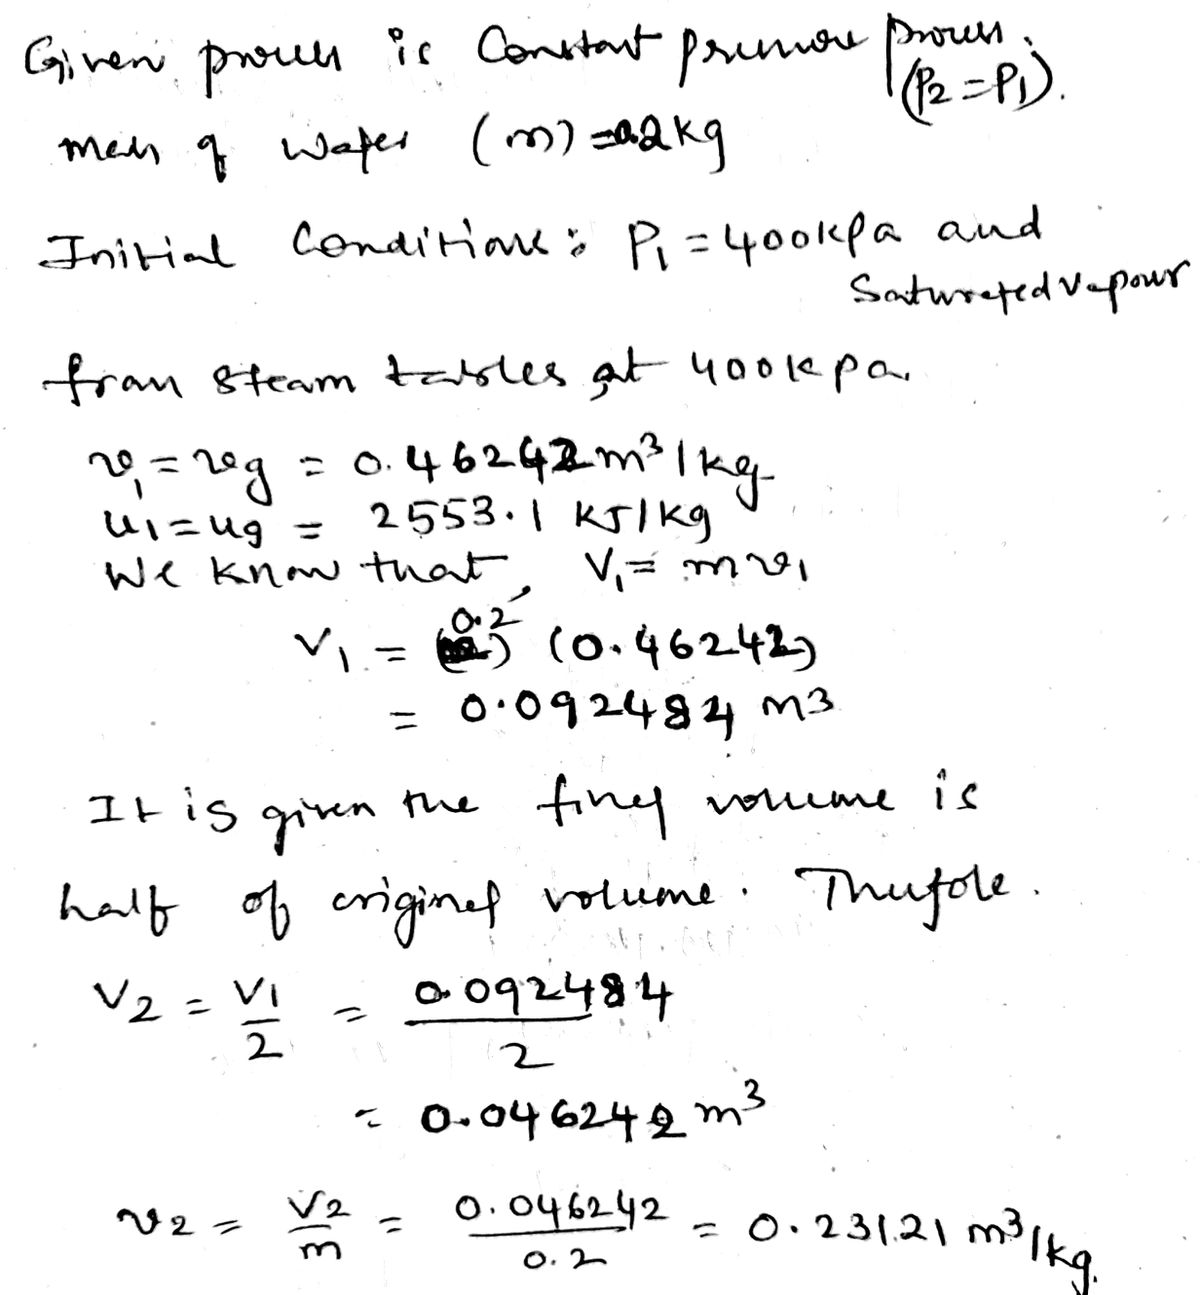 Given process is Constant pressure process.
(P2 = P1).
mass of water (m) = 0.2 kg
Initial Conditions: P1 = 400 kPa and
Saturated Vapour
from steam tables at 400 kpa.
v1 = vg = 0.46242 m³/kg
u1 = ug = 2553.1 kJ/kg
We know that, V1 = m v1
V1 = (0.2) (0.46242)
= 0.092484 m3
It is given the final volume is
half of original volume. Therefore.
V2 = V1/2 = 0.092484/2
= 0.046242 m³
v2 = V2/m = 0.046242/0.2 = 0.23121 m³/kg.